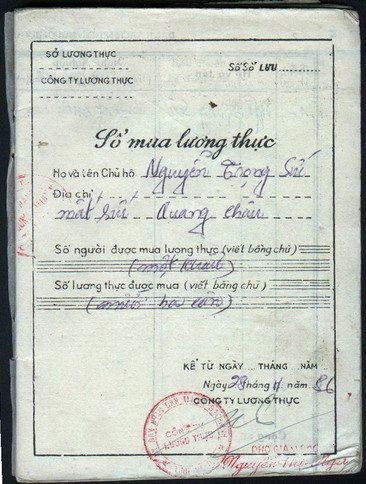 SỞ LƯƠNG THỰC
Số Sổ LƯU
CÔNG TY LƯƠNG THỰC
Sổ mua lương thực
Họ và tên Chủ hộ Nguyễn Trọng Sử
Địa chỉ
mất sức Quang châu
Số người được mua lương thực (viết bằng chữ)
(một khẩu)
Số lương thực được mua (viết bằng chữ)
(mười ba cân)
KỂ TỪ NGÀY ... THÁNG ... NĂM ...
Ngày 28 tháng 11 năm 86
CÔNG TY LƯƠNG THỰC
CÔNG TY
LƯƠNG THỰC
PHÓ GIÁM ĐỐC
Nguyễn